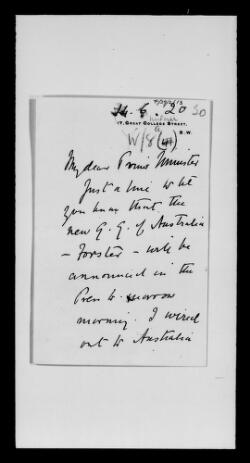 14.6.20
17, GREAT COLLEGE STREET,
S.W.
W/8
My dear Prime Minister
Just a line to let
you know that the
new G. G. of Australia
– Forster – will be
announced in the
Press to-morrow
morning. I wired
out to Australia